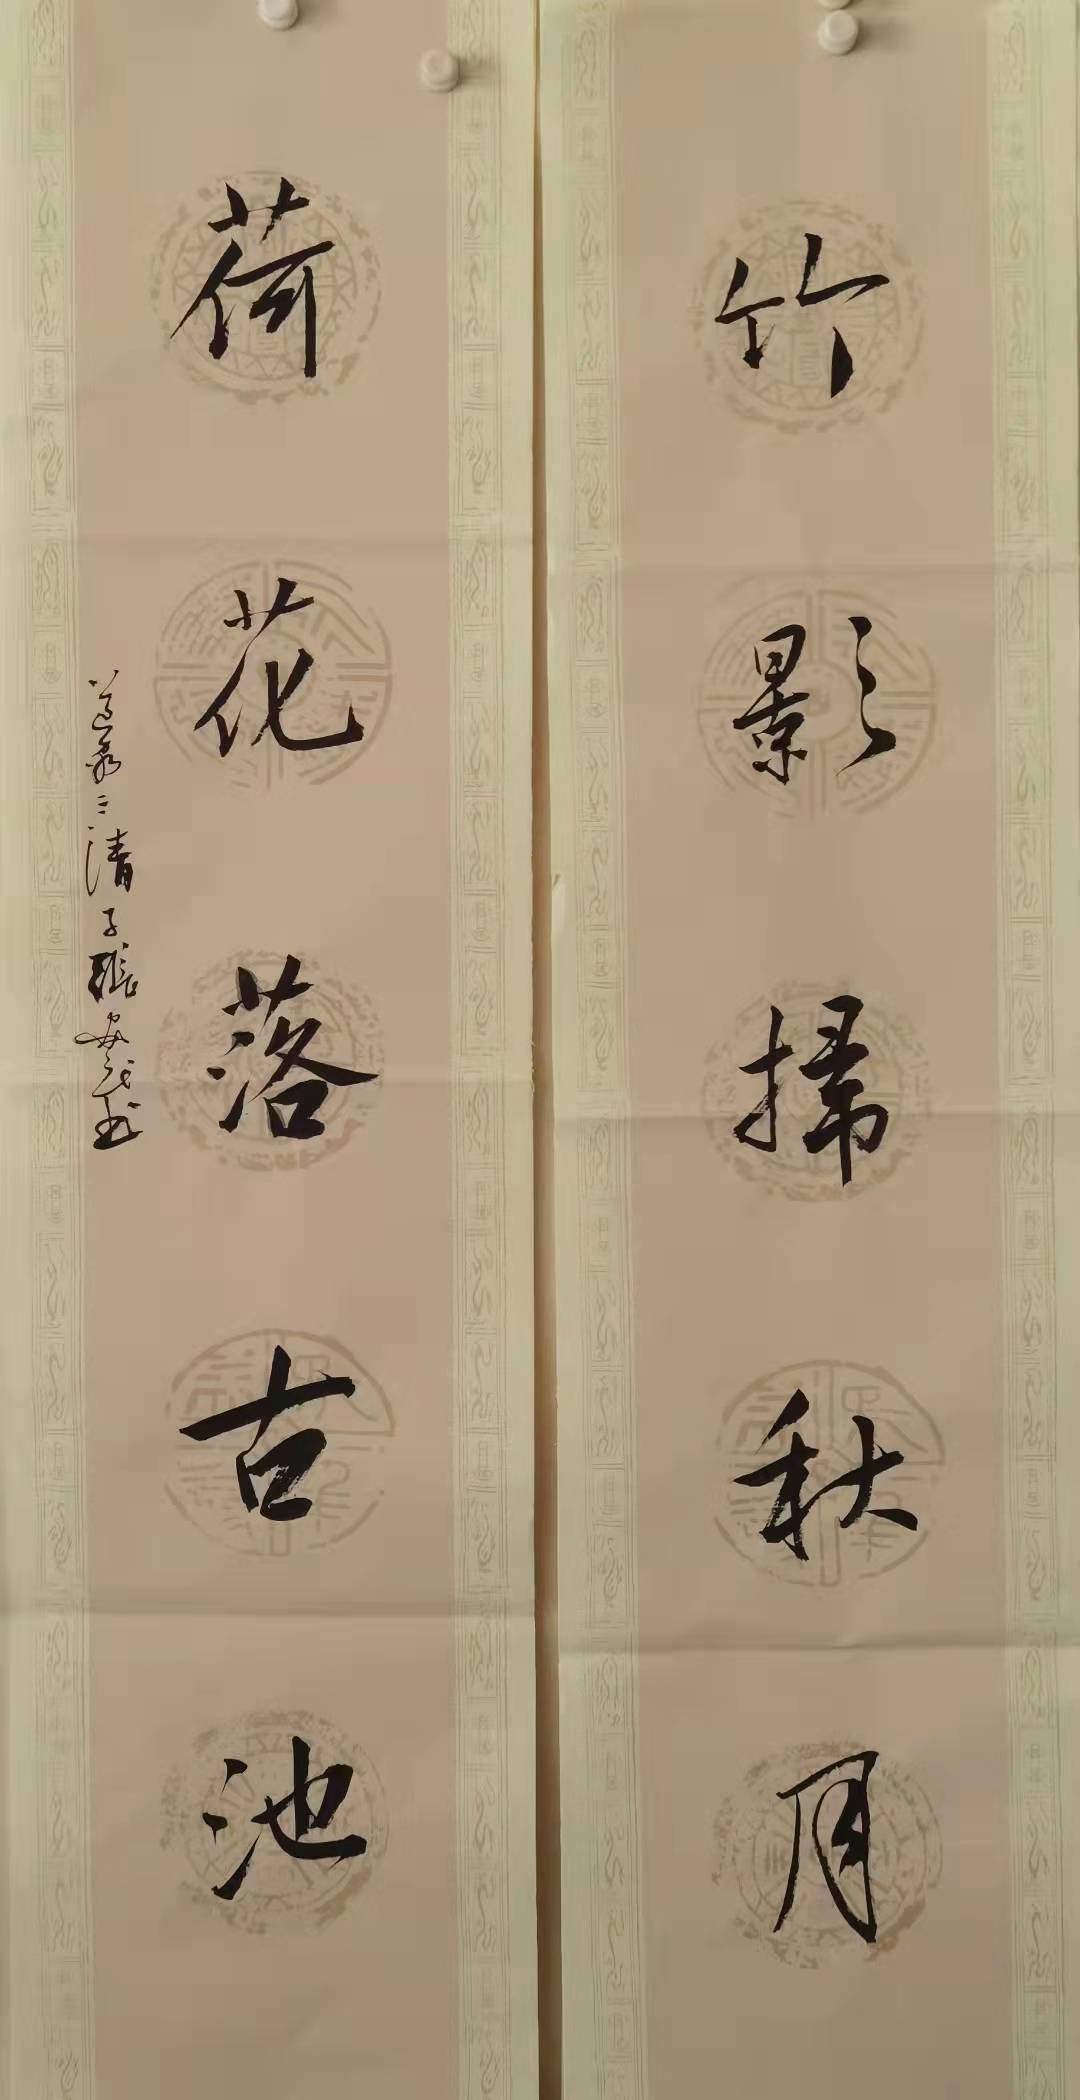 竹影掃秋月
荷花落古池
道家三清子張安民書